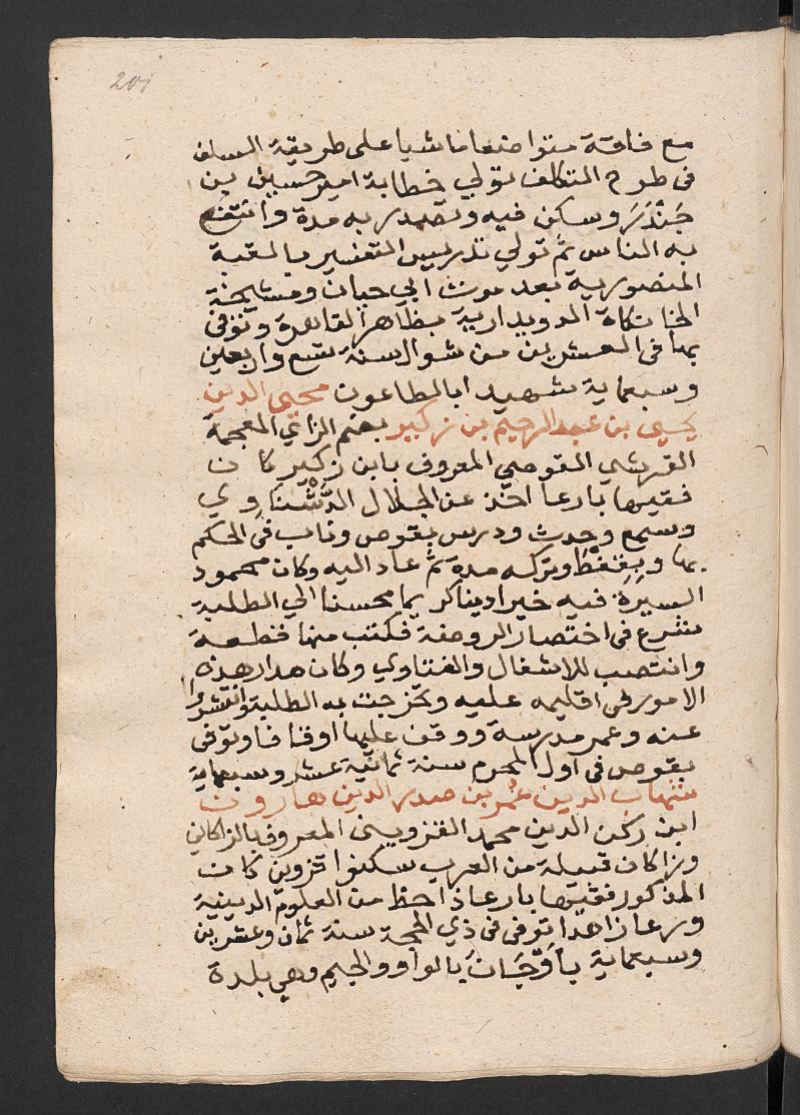 201
مع فاقة متواضعا ماشيا على طريقة السلف
فى طرح التكلف تولي خطابة امير حسين بن
جَنْدَرَ وسكن فيه وتصدر به مدة وانتفع
به الناس ثم تولي تدريس التفسير بالقبة
المنصورية بعد موت ابي حيان ومشيخة
الخانكاة الدويدارية بظاهر القاهرة وتوفى
بها فى العشرين من شوال سنة تسع واربعين
وسبعماية شهيدا بالطاعون محيى الدين
يحيى بن عبد الرحيم بن زكير بضم الزاي المعجمة
القريشي القوصي المعروف بابن زكير كان
فقيها بارعا اخذ عن الجلال الدَّشْناوي
وسمع وحدث ودرس بقوص وناب فى الحكم
بها وبِقِفْط وتركه مدة ثم عاد اليه وكان محمود
السيرة فيه خيرا دينا كريما محسنا الي الطلبة
شرع فى اختصار الروضة فكتب منها قطعة
وانتصب للاشغال والفتاوي وكان مدار هذه
الامور فى اقليمه عليه وتخرجت به الطلبة وانتشروا
عنه وعمر مدرسة ووقف عليها اوقافا وتوفى
بقوص فى اول المحرم سنة ثمانية عشر وسبعماية
شهاب الدين عمر بن صدر الدين هارون
ابن ركن الدين محمد القزوينى المعروف بالزاكاني
وزاكان قبيلة من العرب سكنوا قزوين كان
المذكور فقيها بارعا ذا حظ من العلوم الدينية
ورعا زاهدا توفى فى ذي الحجة سنة ثمان وعشرين
وسبعماية بأوْجَانَ بالواو والجيم وهي بلدة